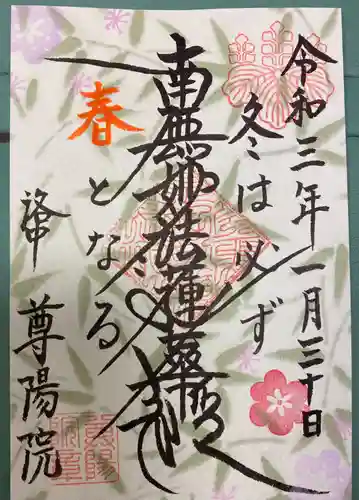 令和三年一月三十日
冬は必ず
南無妙法蓮華経
春となる
尊陽院